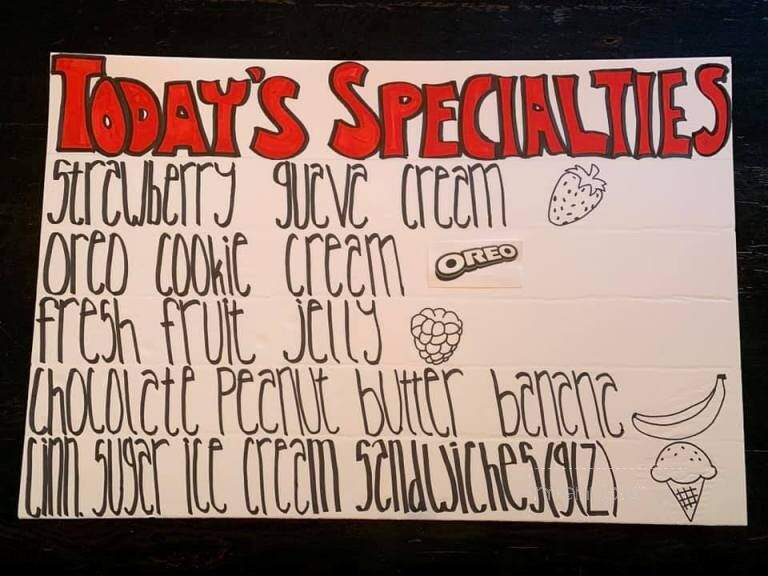 TODAY'S SPECIALTIES
strawberry guava cream
oreo cookie cream OREO
fresh fruit jelly
chocolate peanut butter banana
cinn. sugar ice cream sandwiches (glz)